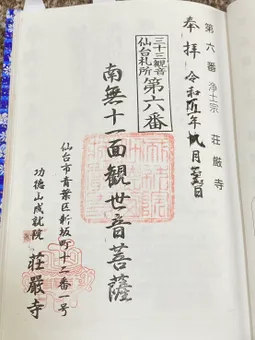 第六番 浄土宗 荘厳寺
奉拝 令和五年
三十三観音
仙台札所
第六番
南無十一面観世音菩薩
仙台市青葉区新坂町十二番一号
功徳山成就院 荘厳寺